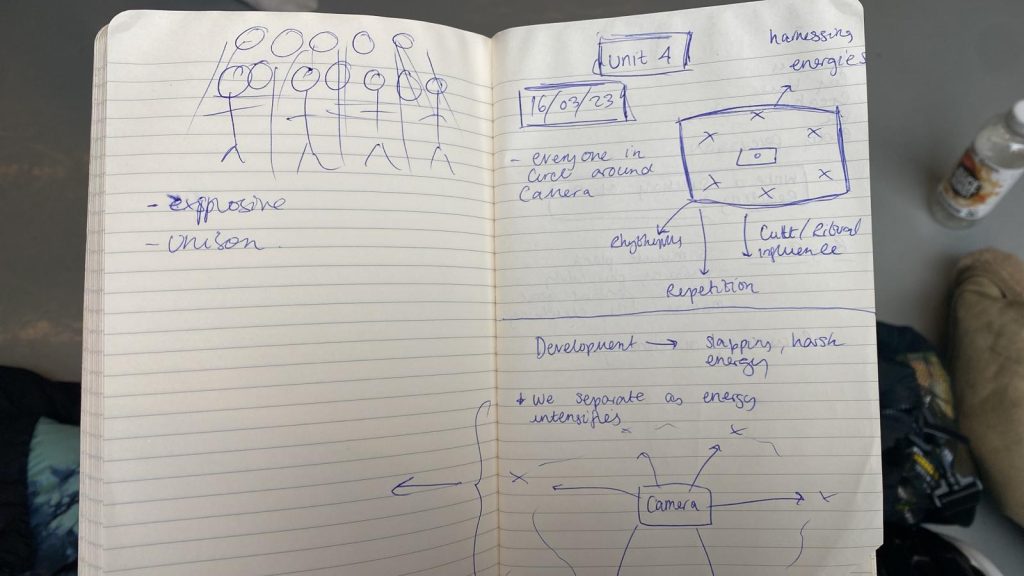 - explosive
- Unison.
Unit 4
harnessing
energies
16/03/23
- everyone in
Circle around
Camera
Rhythms
Cult/Ritual
influence
Repetition
Development → slapping, harsh
energy
We separate as energy
intensifies
Camera